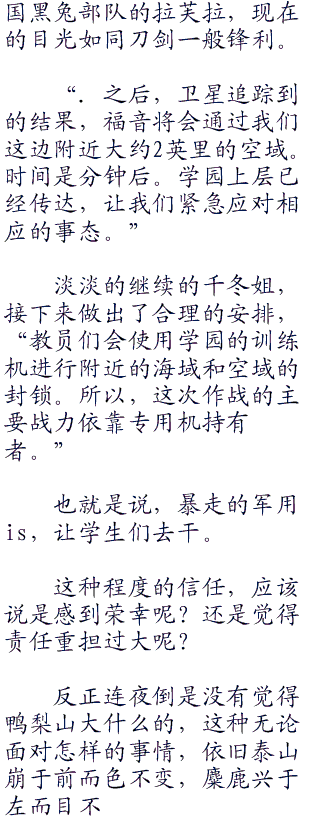 国黑兔部队的拉芙拉，现在
的目光如同刀剑一般锋利。
“．之后，卫星追踪到
的结果，福音将会通过我们
这边附近大约2英里的空域。
时间是分钟后。学园上层已
经传达，让我们紧急应对相
应的事态。”
淡淡的继续的千冬姐，
接下来做出了合理的安排，
“教员们会使用学园的训练
机进行附近的海域和空域的
封锁。所以，这次作战的主
要战力依靠专用机持有
者。”
也就是说，暴走的军用
is，让学生们去干。
这种程度的信任，应该
说是感到荣幸呢？还是觉得
责任重担过大呢？
反正连夜倒是没有觉得
鸭梨山大什么的，这种无论
面对怎样的事情，依旧泰山
崩于前而色不变，麋鹿兴于
左而目不